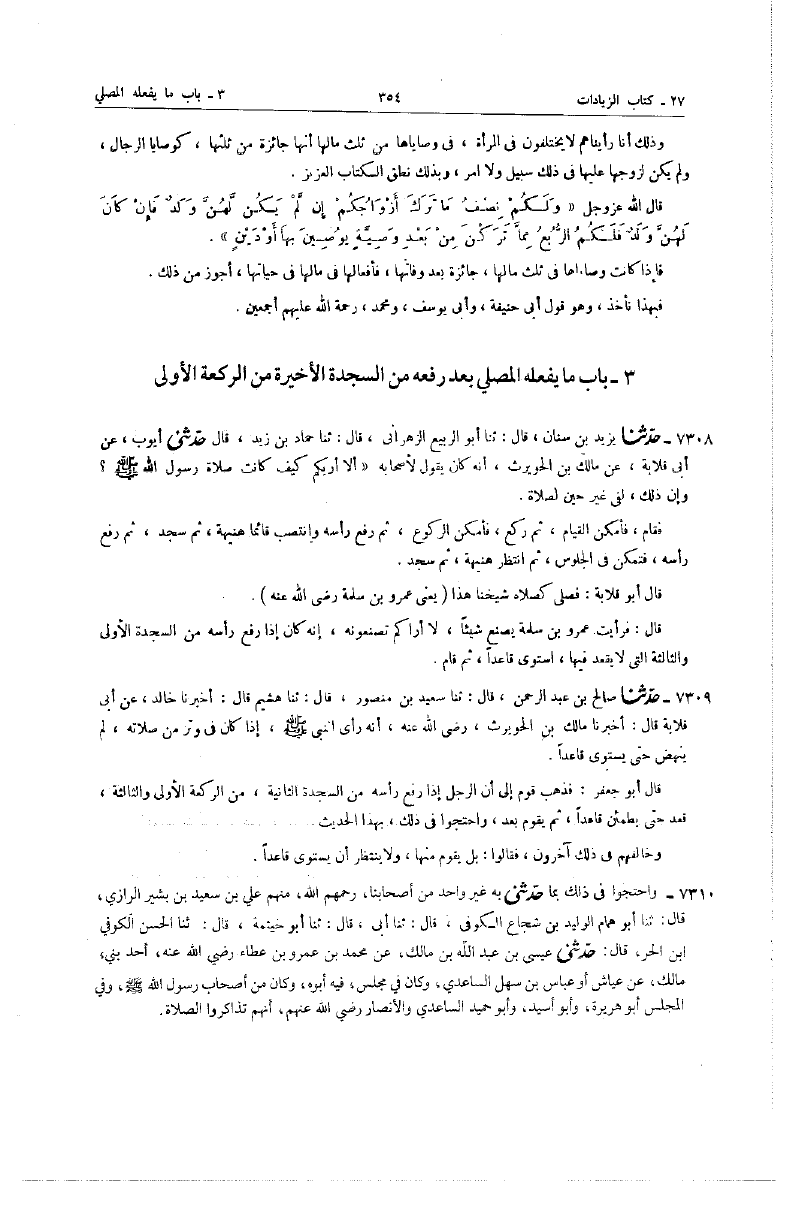 ٢٧ ـ كتاب الزيادات ٣٥٤ ٣ ـ باب ما يفعله المصلي
وذلك أنا رأيناهم لايختلفون فى المرأة ، فى وصاياها من ثلث مالها أنها جائزة من ثلثها ، كوصايا الرجال ،
ولم يكن لزوجها عليها فى ذلك سبيل ولا امر ، وبذلك نطق الكتاب العزيز .
قال الله عزوجل « وَلَكُمْ نِصْفُ مَا تَرَكَ أَزْوَاجُكُمْ إِن لَّمْ يَكُن لَّهُنَّ وَلَدٌ فَإِن كَانَ
لَهُنَّ وَلَدٌ فَلَكُمُ الرُّبُعُ مِمَّا تَرَكْنَ مِنْ بَعْدِ وَصِيَّةٍ يُوصِينَ بِهَا أَوْ دَيْنٍ » .
فإذا كانت وصاياها فى ثلث مالها ، جائزة بعد وفاتها ، فأفعالها فى مالها فى حياتها ، أجوز من ذلك .
فبهذا نأخذ ، وهو قول أبى حنيفة ، وأبى يوسف ، ومحمد ، رحمة الله عليهم أجمعين .
٣ ـ باب ما يفعله المصلي بعد رفعه من السجدة الأخيرة من الركعة الأولى
٧٣٠٨ ـ حدّثنا يزيد بن سنان ، قال : ثنا أبو الربيع الزهرانى ، قال : ثنا حماد بن زيد ، قال حدّثنى أيوب ، عن
أبى قلابة ، عن مالك بن الحويرث ، أنه كان يقول لأصحابه « ألا أريكم كيف كانت صلاة رسول الله ﷺ ؟
وإن ذلك ، لفى غير حين لصلاة .
فقام ، فأمكن القيام ، ثم ركع ، فأمكن الركوع ، ثم رفع رأسه وانتصب قائما هنيهة ، ثم سجد ، ثم رفع
رأسه ، فتمكن فى الجلوس ، ثم انتظر هنيهة ، ثم سجد .
قال أبو قلابة : فصلى كصلاه شيخنا هذا ( يعنى عمرو بن سلمة رضى الله عنه ) .
قال : فرأيت عمرو بن سلمة يصنع شيئاً ، لا أراكم تصنعونه ، إنه كان إذا رفع رأسه من السجدة الأولى
والثالثة التى لايقعد فيها ، استوى قاعداً ، ثم قام .
٧٣٠٩ ـ حدّثنا صالح بن عبد الرحمن ، قال : ثنا سعيد بن منصور ، قال : ثنا هشيم قال : أخبرنا خالد ، عن أبى
قلابة قال : أخبرنا مالك بن الحويرث ، رضى الله عنه ، أنه رأى النبى ﷺ ، إذا كان فى وتر من صلاته ، لم
ينهض حتى يستوى قاعداً .
قال أبو جعفر : فذهب قوم إلى أن الرجل إذا رفع رأسه من السجدة الثانية ، من الركعة الأولى والثالثة ،
قعد حتى يطمئن قاعداً ، ثم يقوم بعد ، واحتجوا فى ذلك ، بهذا الحديث
وخالفهم فى ذلك آخرون ، فقالوا : بل يقوم منها ، ولاينتظر أن يستوى قاعداً .
٧٣١٠ ـ واحتجوا فى ذلك بما حدّثنى به غير واحد من أصحابنا، رحمهم الله، منهم علي بن سعيد بن بشير الرازي،
قال: ثنا أبو همام الوليد بن شجاع الكوفى ، قال : ثنا أبى ، قال : ثنا أبو خيثمة ، قال : ثنا الحسن الكوفي
ابن الحر، قال: حدّثنى عيسى بن عبد الله بن مالك، عن محمد بن عمرو بن عطاء رضي الله عنه، أحد بني،
مالك، عن عياش أو عباس بن سهل الساعدي، وكان في مجلس، فيه أبوه، وكان من أصحاب رسول الله ﷺ، وفي
المجلس أبو هريرة، وأبو أسيد، وأبو حميد الساعدي والأنصار رضي الله عنهم، أنهم تذاكروا الصلاة.